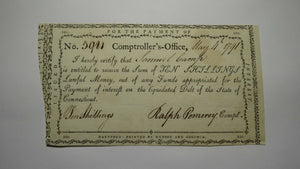 FOR THE PAYMENT OF
No. Comptroller's-Office, May 4 1791
I hereby certify that Samuel
is entitled to receive the Sum of TEN SHILLINGS
Lawful Money, out of any Funds appropriated for the
Payment of interest on the Liquidated Debt of the State of
Connecticut.
Ten Shillings Ralph Pomeroy Compt.
HARTFORD: PRINTED BY HUDSON AND GOODWIN.